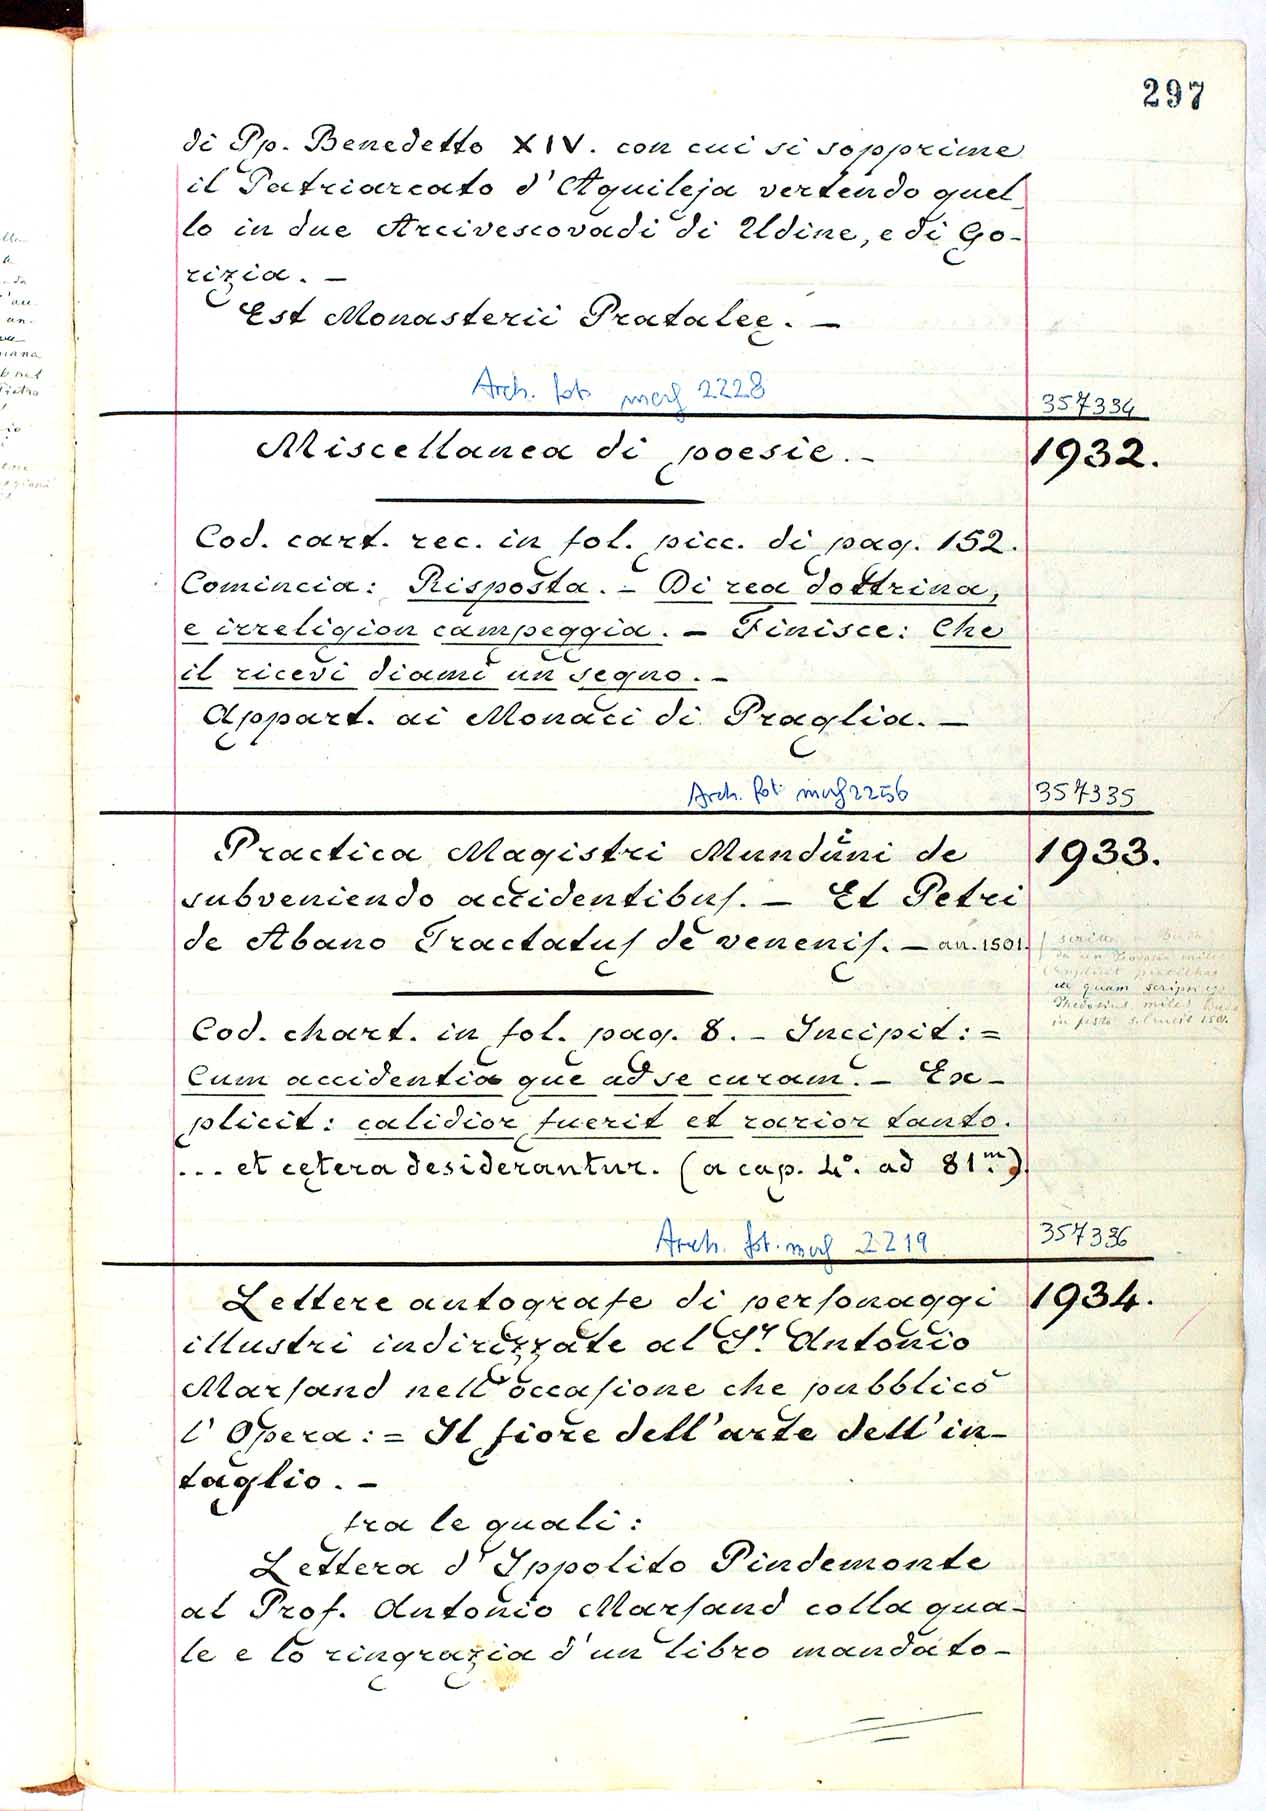 297
di Pp. Benedetto XIV. con cui si sopprime
il Patriarcato d'Aquileja vertendo quel
lo in due Arcivescovadi di Udine, e di Go-
rizia. -
Est Monasterii Pratalee. -
Arch. fot. marg 2228
357334
Miscellanea di poesie. -
1932.
Cod. cart. rec. in fol. picc. di pag. 152.
Comincia: Risposta. - Di rea dottrina,
e irreligion campeggia. - Finisce: Che
il ricevi diami un segno. -
Appart. ai Monaci di Praglia. -
Arch. fot. marg 2256
357335
Practica Magistri Munduni de
1933.
subveniendo accidentibus. - Et Petri
de Abano Tractatus de venenis. - an. 1501.
quam scrips
Thedosius miles
in festo 1501.
Cod. chart. in fol. pag. 8. - Incipit: =
Cum accidentia que ad se curam. - Ex-
plicit: calidior fuerit et rarior tanto.
... et cętera desiderantur. (a cap. 4º. ad 81.m)
Arch. fot. marg 2219
357336
Lettere autografe di personaggi
1934.
illustri indirizzate al Sr. Antonio
Marsand nell'occasione che pubblicò
l'Opera: = Il fiore dell'arte dell'in-
taglio. -
tra le quali:
Lettera d'Ippolito Pindemonte
al Prof. Antonio Marsand colla qua-
le e lo ringrazia d'un libro mandato-